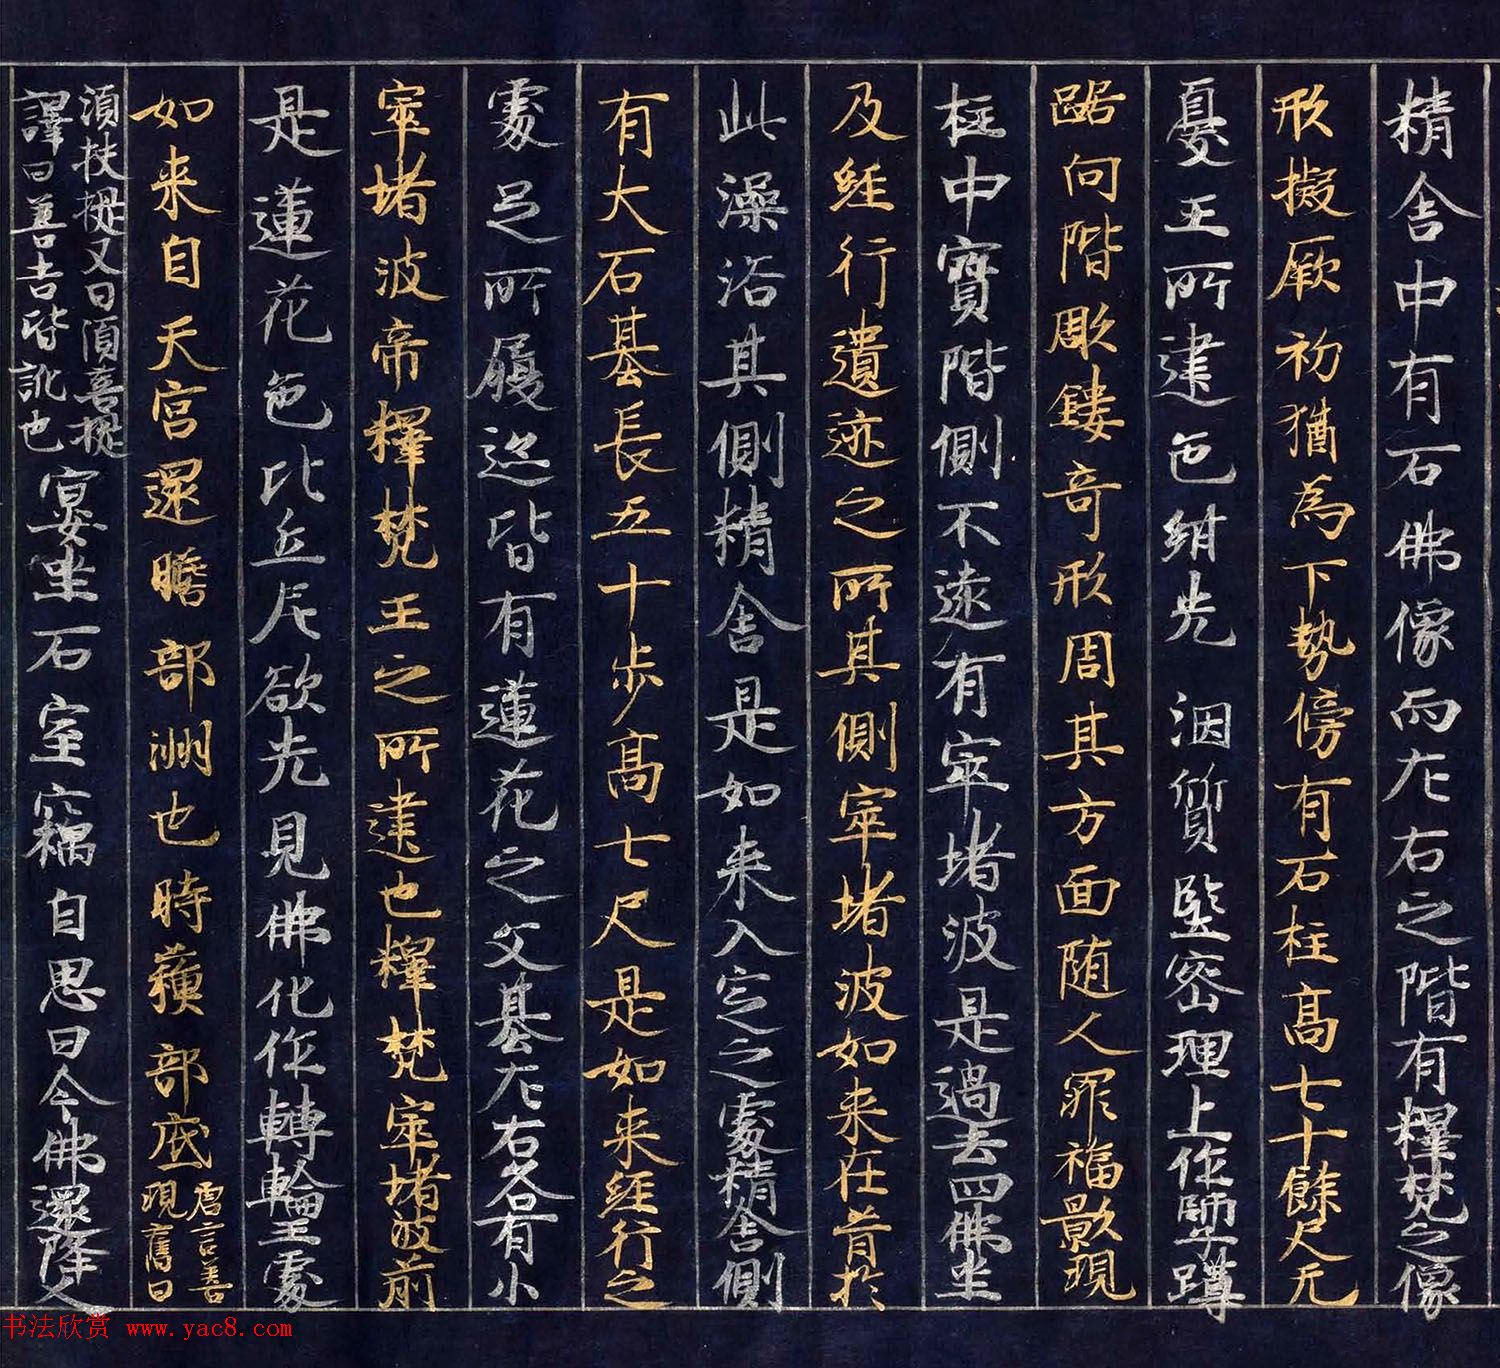 精舍中有石佛像而左右之階有釋梵之像
形擬厥初猶為下勢傍有石柱高七十餘尺无
憂王所建色紺光洇質堅密理上作師子蹲
踞向階彫鏤奇形周其方面随人罪福影現
柱中寳階側不遠有窣堵波是過去四佛坐
及経行遺迹之所其側窣堵波如来在昔於
此澡浴其側精舍是如来入㝎之處精舍側
有大石基長五十步髙七尺是如来経行之
處足所履迹皆有蓮花之文基左右各有小
窣堵波帝釋梵王之所建也釋梵窣堵波前
是蓮花色比丘尼欲先見佛化作轉輪王處
如来自天宮還瞻部洲也時蘓部底唐言善現舊曰
湏扶提又曰湏菩提
譯曰善吉皆訛也宴坐石室竊自思曰今佛還降人
书法欣赏 www.yac8.com